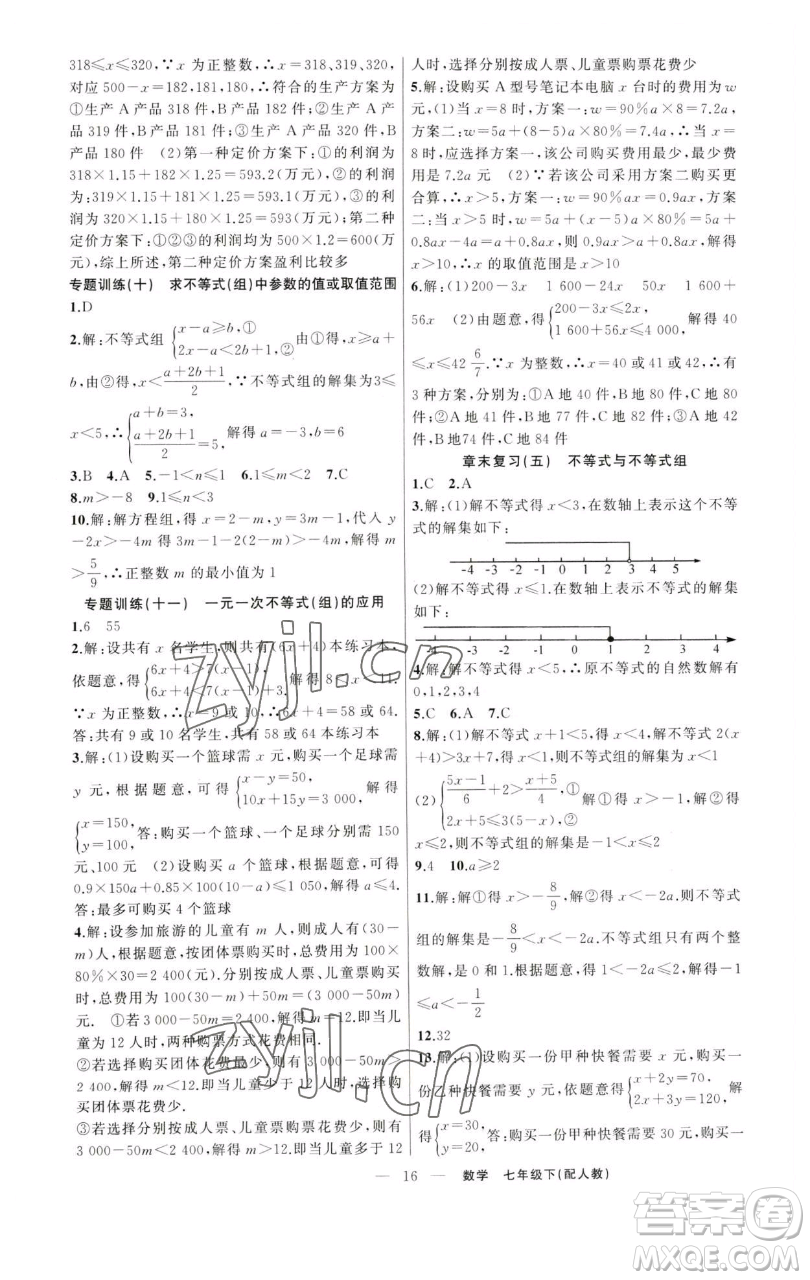 318≤x≤320,∵x 为正整数,∴x=318、319、320,
对应 500-x=182,181,180,∴符合的生产方案为
①生产 A 产品 318 件,B 产品 182 件;②生产 A 产
品 319 件,B产品 181 件;③生产 A 产品 320 件,B
产品 180 件 (2)第一种定价方案下:①的利润为
318×1.15+182×1.25=593.2(万元),②的利润
为:319×1.15+181×1.25=593.1(万元);③的利
润为 320×1.15+180×1.25=593(万元);第二种
定价方案下:①②③的利润均为 500×1.2=600(万
元),综上所述,第二种定价方案盈利比较多
专题训练(十) 求不等式(组)中参数的值或取值范围
1.D
2.解:不等式组 {x-a≥b,① 2x-a<2b+1,② 由①得,x≥a+
b,由②得,x<(a+2b+1)/2,∵不等式组的解集为3≤
x<5,∴{a+b=3, (a+2b+1)/2=5, 解得 a=-3,b=6
3.B 4.A 5.-1<n≤1 6.1≤m≤4 7.C
8.m>-8 9.1≤n<3
10.解:解方程组,得 x=2-m,y=3m-1,代人 y
-2x>-4m 得 3m-1-2(2-m)>-4m,解得 m
>5/9,∴正整数 m 的最小值为 1
专题训练(十一) 一元一次不等式(组)的应用
1.6 55
2.解:设共有 x 名学生,则共有(6x+4)本练习本,
依题意,得{6x+4>7(x-1), 6x+4<7(x-1)+3, 解得 8<x<11.
∵x 为正整数,∴x=9 或 10,∴6x+4=58 或 64.
答:共有 9 或 10 名学生,共有 58 或 64 本练习本
3.解:(1)设购买一个篮球需 x 元,购买一个足球需
y 元,根据题意,可得{x-y=50, 10x+15y=3 000, 解得
{x=150, y=100, 答:购买一个篮球、一个足球分别需 150
元、100 元 (2)设购买 a 个篮球,根据题意,可得
0.9×150a+0.85×100(10-a)≤1 050,解得 a≤4.
答:最多可购买 4 个篮球
4.解:设参加旅游的儿童有 m 人,根据题意有(30-
m)人,根据题意,得按团体票购买时,总费用为 100×
80%×30=2 400(元).分别按成人票、儿童票购买
时,总费用为 100(30-m)+50m=(3 000-50m)
元. ①若 3 000-50m=2 400.解得 m=12.即当儿
童为 12 人时,两种购票方式花费相同.
②若选择购买团体花费最少,则有 3 000-50m>
2 400.解得 m<12.即当儿童少于 12 人时,选择购
买团体票花费少.
③若选择分别按成人票、儿童票购票花费少,则有
3 000-50m<2 400.解得 m>12.即当儿童多于 12
人时,选择分别按成人票、儿童票购票花费少
5.解:设购买 A 型号笔记本电脑 x 台时的费用为 w
元,(1)当 x=8 时,方案一:w=90%a×8=7.2a,
方案二:w=5a+(8-5)a×80%=7.4a,∴当 x=
8 时,应选择方案一,该公司购买费用最少,最少费
用是 7.2a 元 (2)∵若该公司采用方案二购买更
合算,∴x>5,方案一:w=90%ax=0.9ax,方案
二:当 x>5 时,w=5a+(x-5)a×80%=5a+
0.8ax-4a=a+0.8ax,则 0.9ax>a+0.8ax,解得
x>10,∴x 的取值范围是 x>10
6.解:(1)200-3x 1 600-24x 50x 1 600+
56x (2)由题意,得{200-3x≤2x, 1 600+56x≤4 000, 解得 40
≤x≤42 6/7.∵x 为整数,∴x=40 或 41 或 42,∴有
3 种方案,分别为:①A 地 40 件,B 地 80 件,C 地 80
件;②A 地 41 件,B 地 77 件,C 地 82 件;③A 地 42
件,B 地74 件,C 地 84 件
章末复习(五) 不等式与不等式组
1.C 2.A
3.解:(1)解不等式得 x<3,在数轴上表示这个不等
式的解集如下:
-4 -3 -2 -1 0 1 2 3 4 5
(2)解不等式得 x≤1.在数轴上表示不等式的解集
如下:
-4 -3 -2 -1 0 1 2 3 4
4.解:解不等式得 x<5,∴原不等式的自然数解有
0,1,2,3,4
5.C 6.A 7.C
8.解:(1)解不等式 x+1<5,得 x<4,解不等式 2(x
+4)>3x+7,得 x<1,则不等式组的解集为 x<1
(2){(5x-1)/6+2>(x+5)/4,① 2x+5≤3(5-x),② 解①得 x>-1,解②得
x≤2,则不等式组的解集是-1<x≤2
9.4 10.a≥2
11.解:解①得 x>-8/9,解②得 x<-2a,不等式
组的解集是-8/9<x<-2a.不等式组只有两个整
数解,是 0 和 1.根据题意,得 1<-2a≤2.解得-1
≤a<-1/2
12.32
13.解:(1)设购买一份甲种快餐需要 x 元,购买一
份乙种快餐需要 y 元,依题意,得{x+2y=70, 2x+3y=120, 解
得{x=30, y=20. 答:购买一份甲种快餐需要 30 元,购买
— 16 — 数学 七年级下(配人教)
zyjl.cn
zyjl.cn
答案圈
MXQE.COM